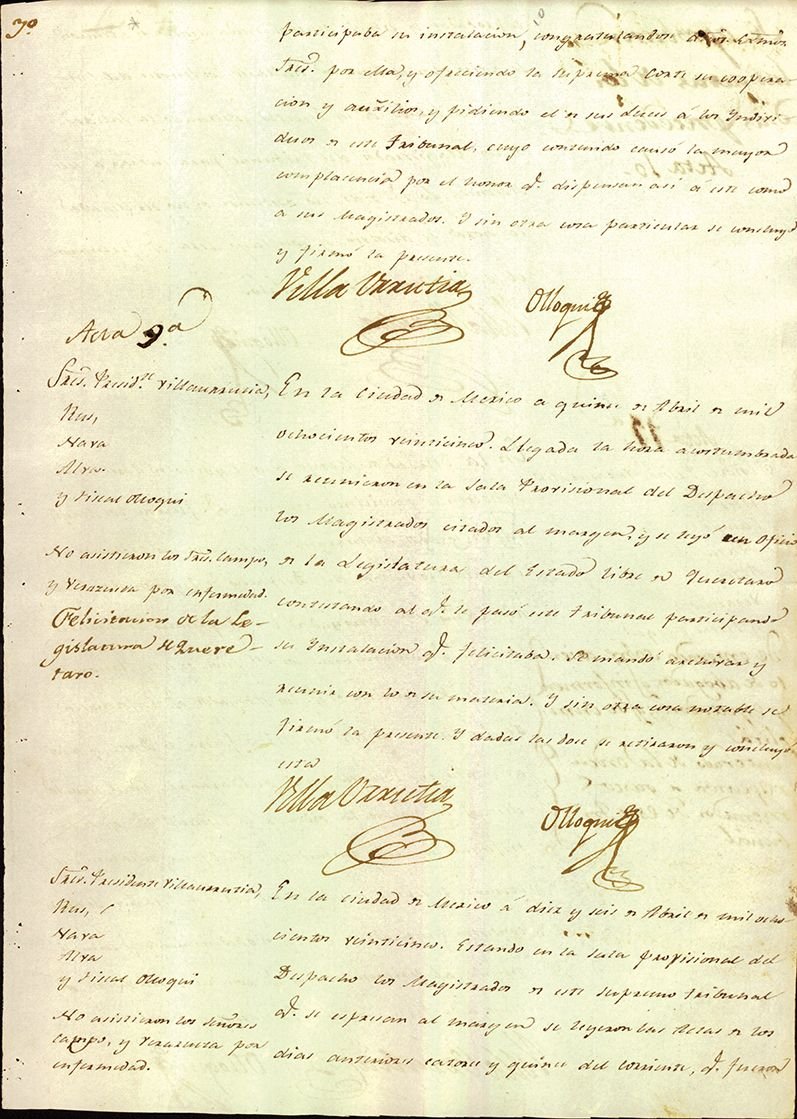 30.
participaba su instalacion, congratulandose dhôs. Exmôs.
Srês. por ella, y ofreciendo la suprema corte su coopera-
cion y auxilios, y pidiendo el de sus luces á los Indivi-
duos de este Tribunal, cuyo contenido causó la mayor
complacencia por el honor q.e dispensan asi á este como
a sus Magistrados. Y sin otra cosa particular se concluyó
y firmó la presente.
Villa Urrutia
Olloqui
Acta 9.a
Srês. Presid.te Villaurrutia,
Rus,
Nava
Alva.
y Fiscal Olloqui
No asistieron los Srês. Campo,
y Verazueta por enfermedad.
Felicitacion de la Le-
gislatura de Quere-
taro.
En la Ciudad de Mexico a quince de Abril de mil
ochocientos veinticinco. Llegada la hora acostumbrada
se reunieron en la Sala Provisional del Despacho
los Magistrados citados al margen, y se leyó un oficio
de la Legislatura del Estado libre de Queretaro
contestando al q.e le pasó este Tribunal participando
su Instalacion q.e felicitaba. Se mandó archivar y
reunir con lo de su materia. Y sin otra cosa notable se
firmó la presente. Y dadas las doce se retiraron y concluyó
esta
Villa Urrutia
Olloqui
Srês. Presidente Villaurrutia,
Rus,
Nava
Alva
y Fiscal Olloqui
No asistieron los señores
Campo, y Verazueta por
enfermedad.
En la Ciudad de Mexico á diez y seis de Abril de mil ocho-
cientos veinticinco. Estando en la sala provisional del
Despacho los Magistrados de este supremo tribunal
q.e se espresan al margen se leyeron las Actas de los
dias anteriores catorce y quince del corriente, q.e fueron